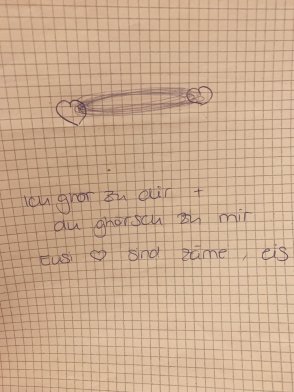 Ich ghör zu dir +
du ghörsch zu mir
Eusi ♡ sind zäme, eis